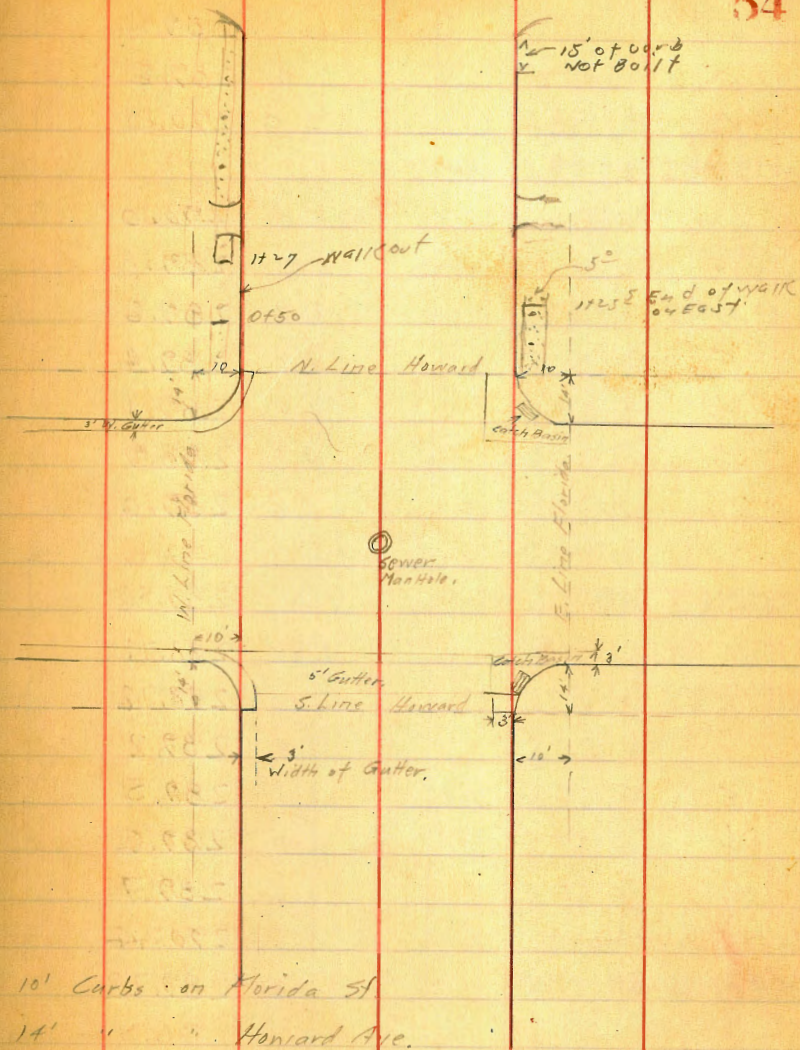 54
15' of curb
Not Built
1+27 Walk out
5°
1+25 End of Walk
on East
0+50
10
N. Line Howard
10
14'
14'
3' W. Gutter
Catch Basin
W. Line Florida
E. Line Florida
Sewer
ManHole.
10'
Catch Basin
3'
14'
5' Gutter.
S. Line Howard
14'
3'
3'
10'
Width of Gutter.
10' Curbs on Florida St.
14' " " Howard Ave.